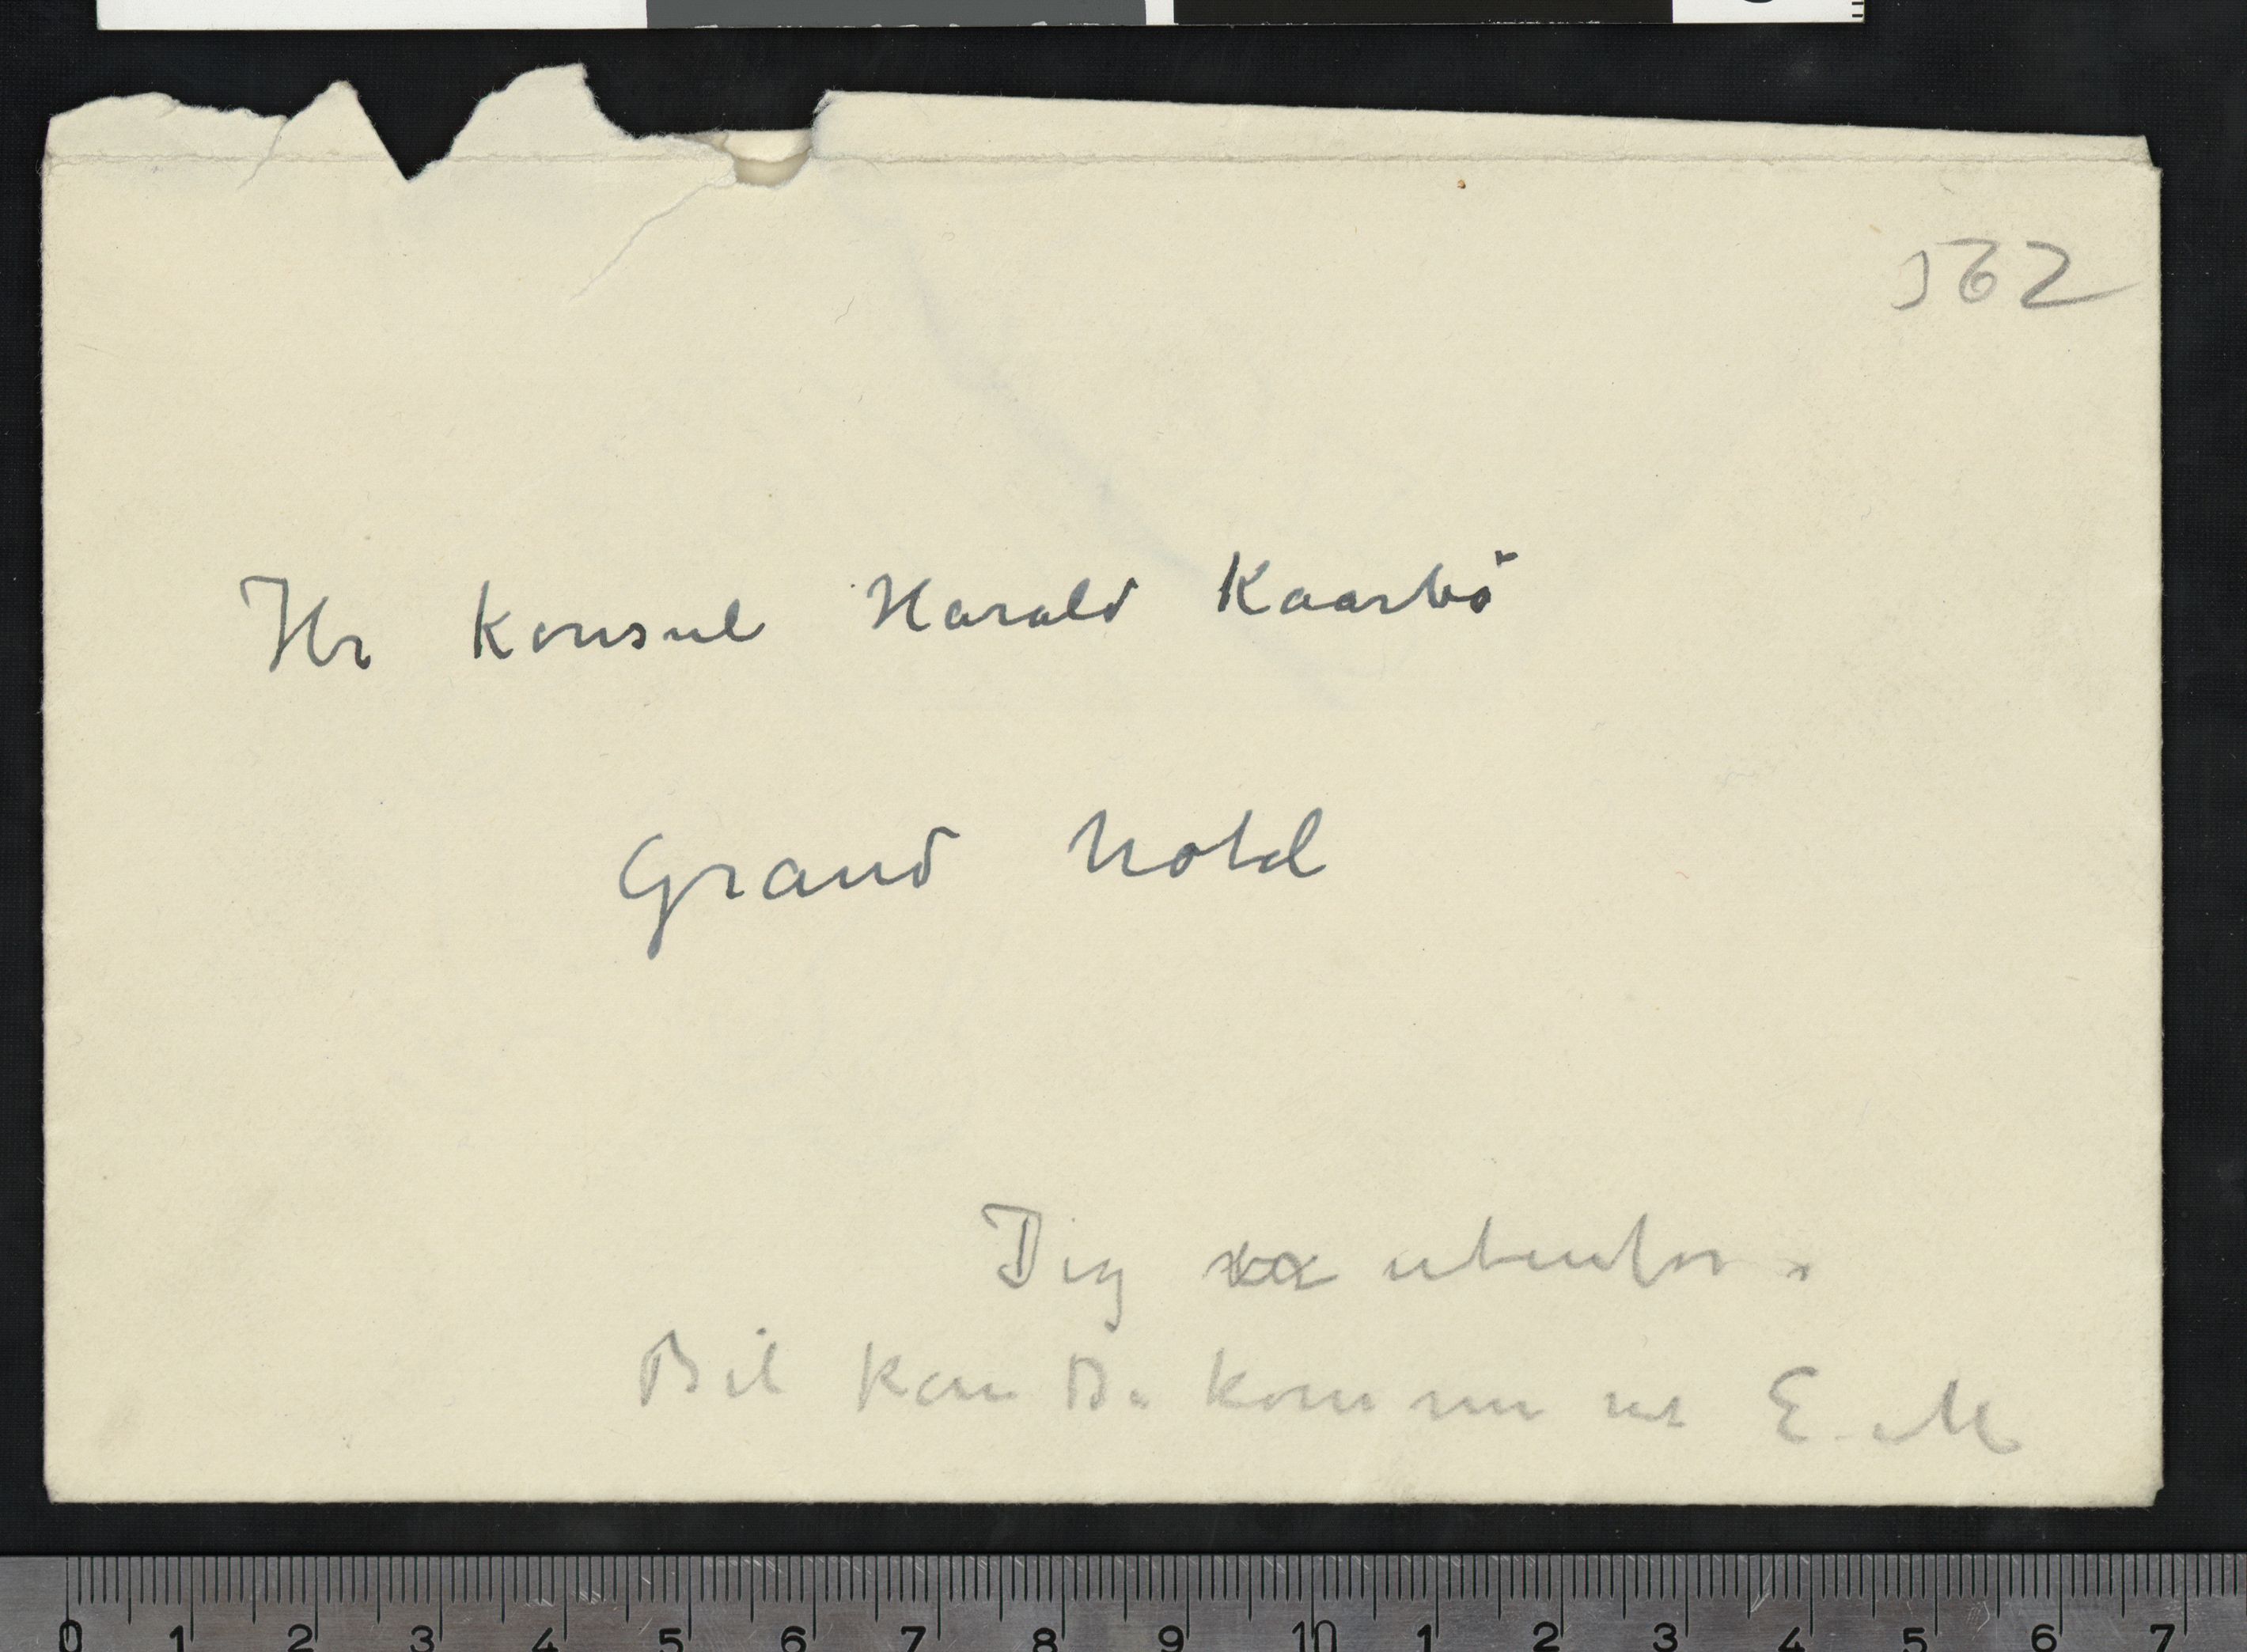 562
Hr Konsul Harald Kaarbö
Grand hotel
Dig utenfor
Bil kan Du komme ut E. M
0 1 2 3 4 5 6 7 8 9 10 1 2 3 4 5 6 7